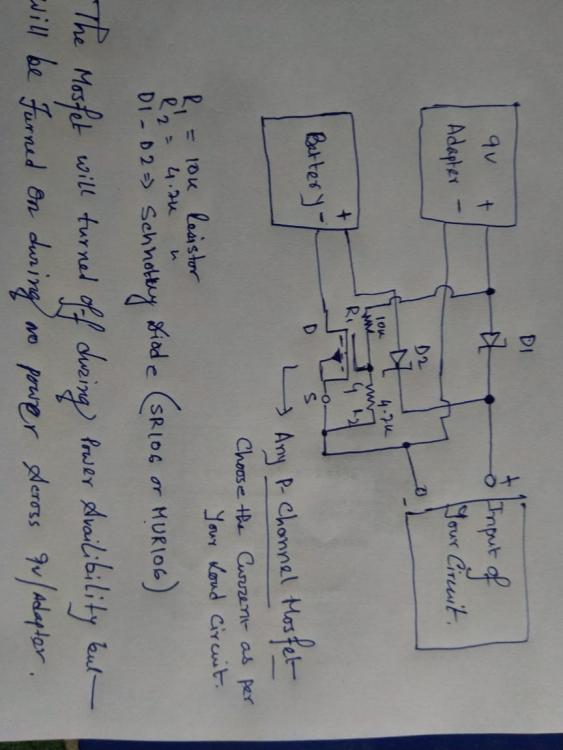 9v + Adapter -
D1
+ Input of
Your Circuit.
-
Battery - +
R1 10K
D2
4.7K
G
D
S
Any P-Channel Mosfet
Choose the Current as per
Your Load Circuit.
R1 = 10K Resistor
R2 = 4.7K "
D1 - D2 => Schhottky Diode (SR106 or MUR106)
The Mosfet will turned off during Power Availibility but
will be Turned on during no power Across 9v/Adaptor.